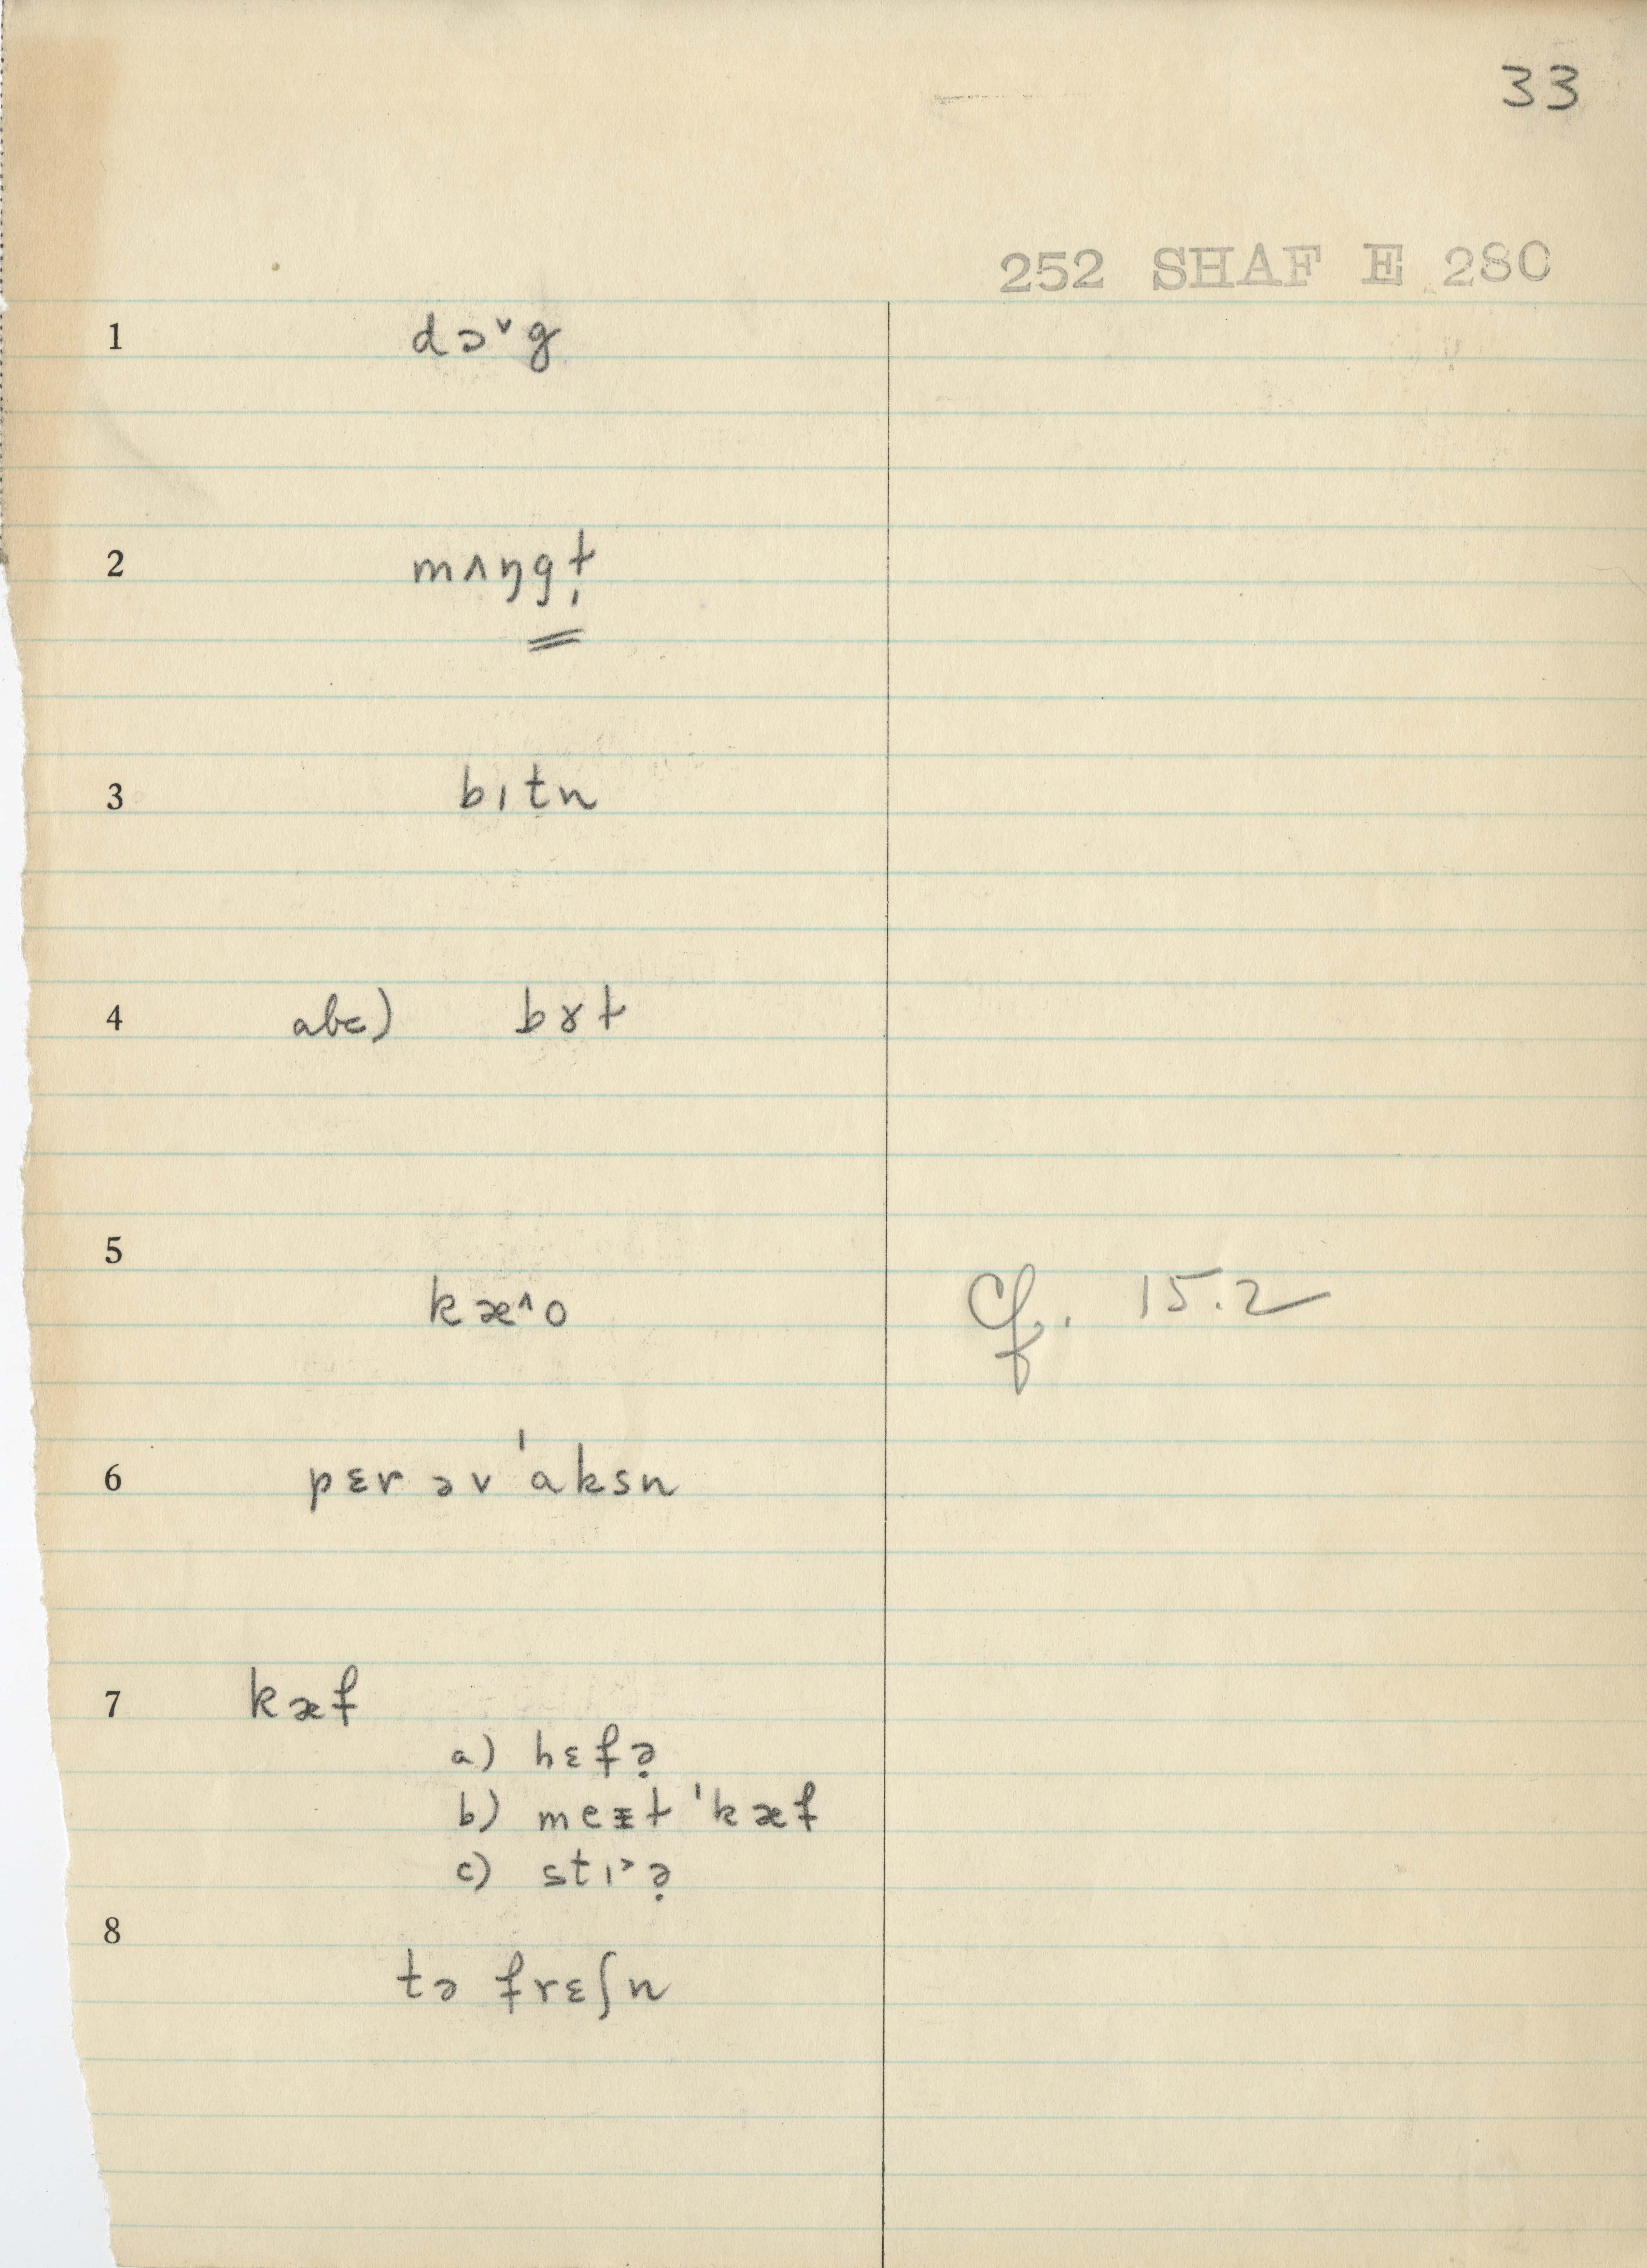 33
252 SHAF E 280
1 dɔˇg
2 mʌŋgɫ̩
3 bɪtn
4 abc) bɤɫ
5 kæ^o cf. 15.2
6 pɛr əv ˈaksn
7 kæf
a) hɛfə̣
b) meɪɫ ˈkæf
c) stɪ˃ə̣
8 tə frɛʃn